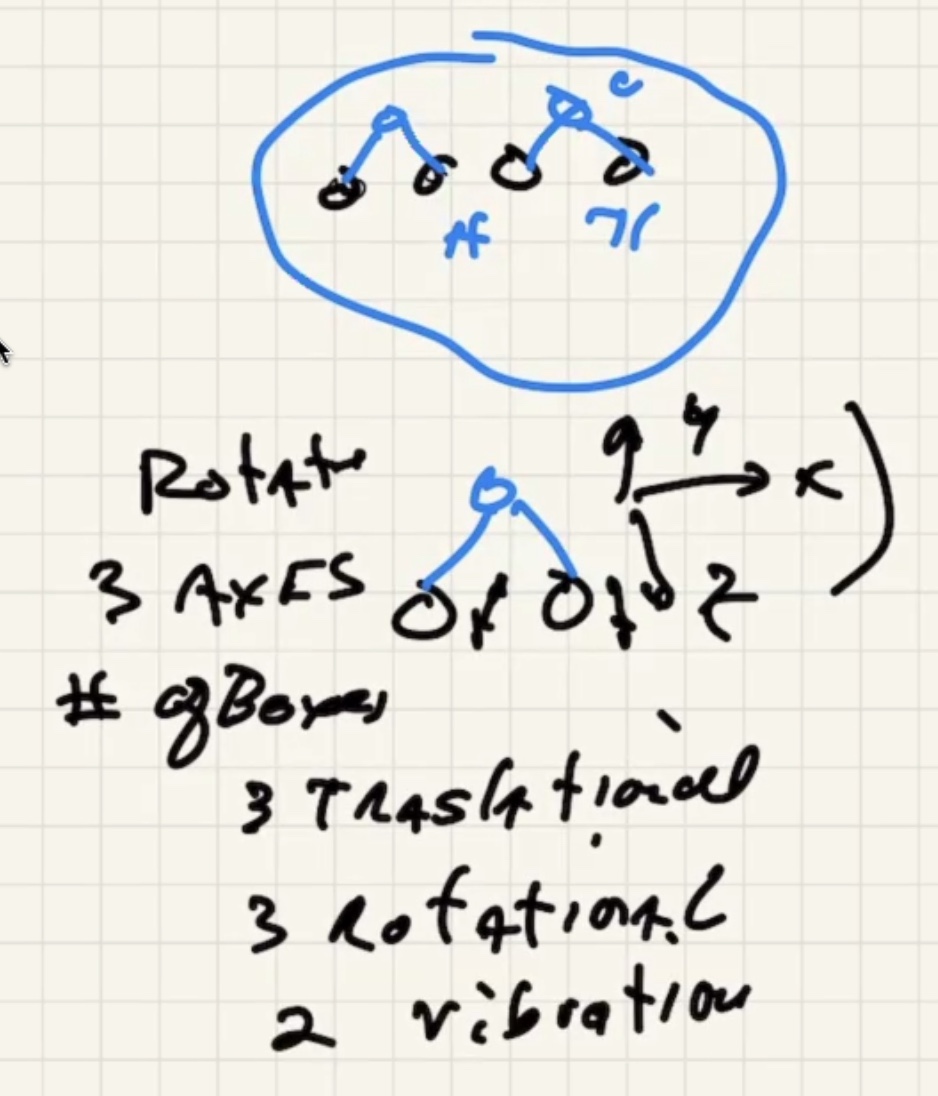 Rotate
y
x
3 AXES
z
# of Boxes
3 Traslational
3 Rotational
2 vibration